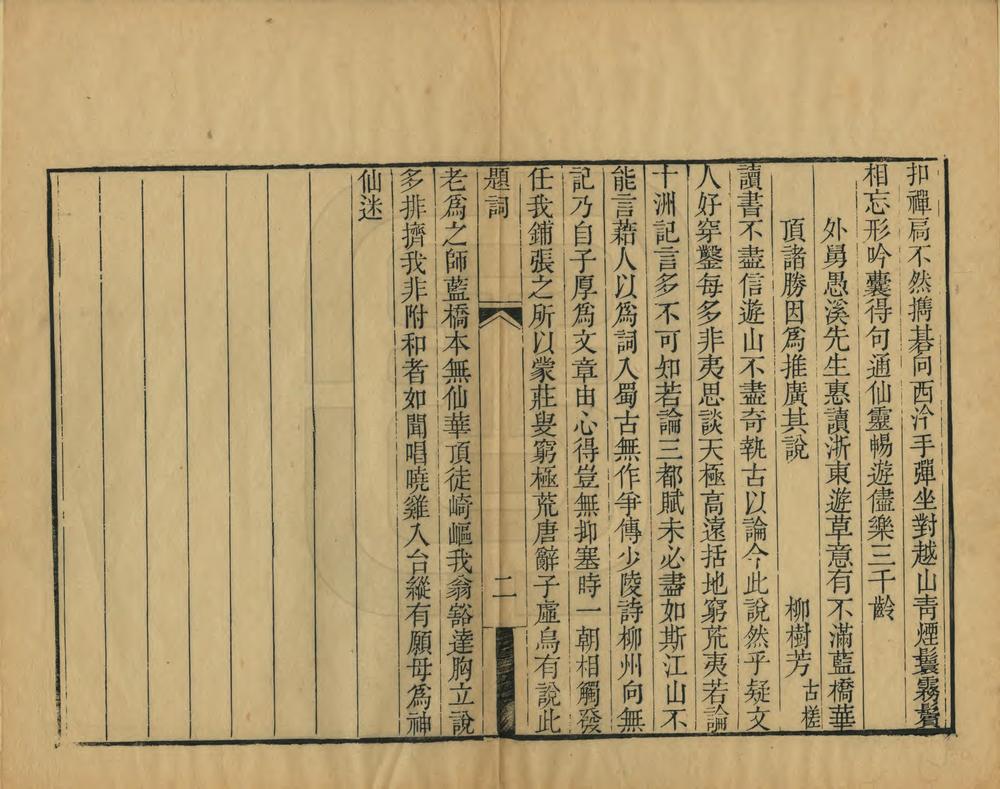 扣禪扃不然擕碁向西泠手彈坐對越山靑煙鬟霧鬢
相忘形吟囊得句通仙靈暢遊儘樂三千齡
外舅愚溪先生惠讀浙東遊草意有不滿藍橋華
頂諸勝因爲推廣其說
柳樹芳 古槎
讀書不盡信遊山不盡奇執古以論今此說然乎疑文
人好穿鑿每多非夷思談天極高遠括地窮荒夷若論
十洲記言多不可知若論三都賦未必盡如斯江山不
能言藉人以爲詞入蜀古無作爭傳少陵詩柳州向無
記乃自子厚爲文章由心得豈無抑塞時一朝相觸發
任我鋪張之所以蒙莊叟窮極荒唐辭子虛烏有說此
題詞
二
老爲之師藍橋本無仙華頂徒崎嶇我翁豁達胸立說
多排擠我非附和者如聞唱曉雞入台縱有願毋爲神
仙迷